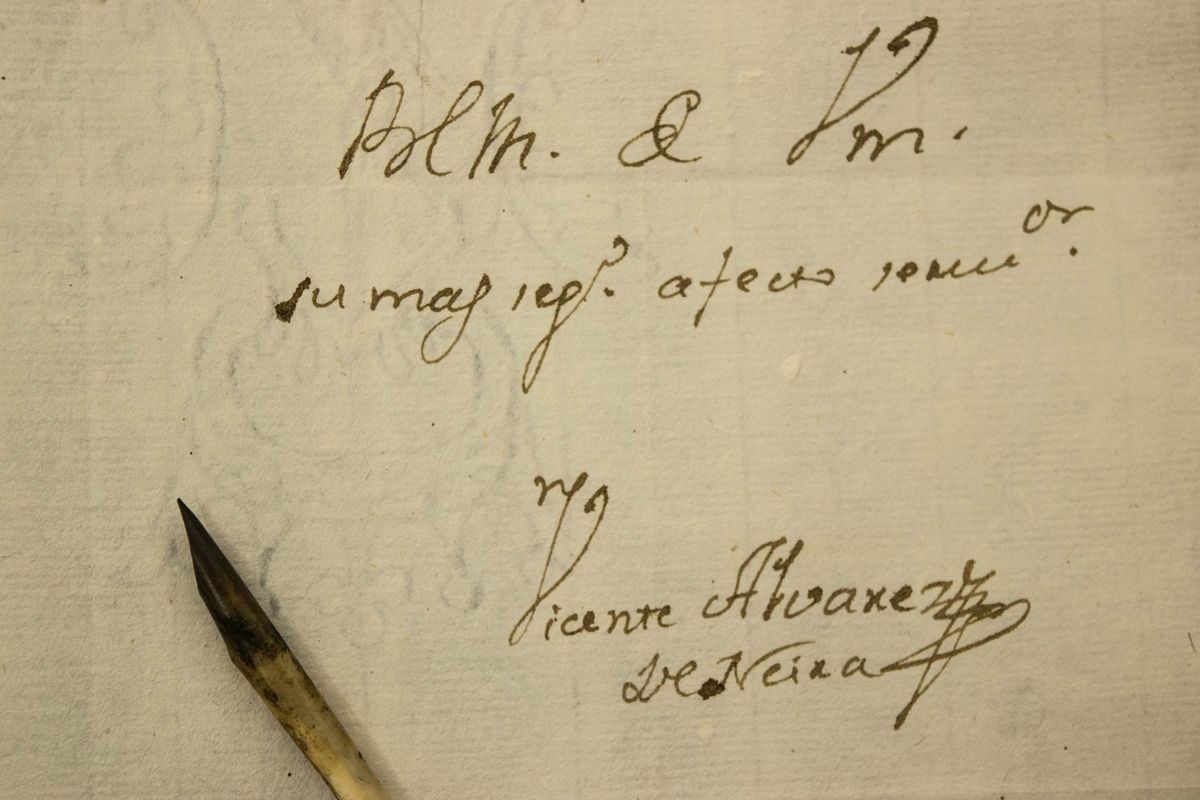 BlM. de Vm.
su mas segº. afecto servi.ᵒʳ
Vicente Alvarez
de Neira